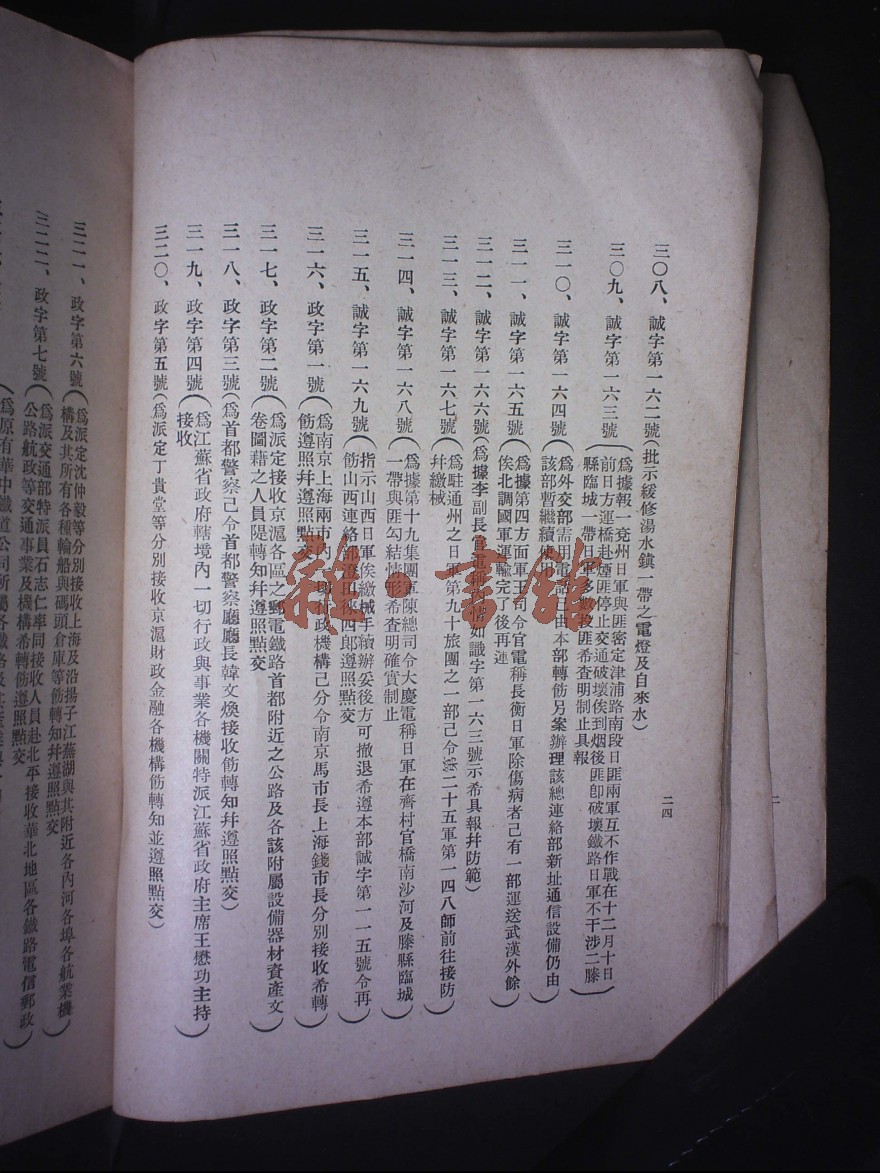 二四
三〇八、誠字第一六二號(批示綏修湯水鎮一帶之電燈及自來水)
三〇九、誠字第一六三號(爲據報一兗州日軍與匪密定津浦路南段日匪兩軍互不作戰在十二月十日
前日方運橋赴煙匪停止交通破壞俟到烟後匪卽破壞鐵路日軍不干涉二滕
縣臨城一帶日軍多數投匪希查明制止具報)
三一〇、誠字第一六四號(爲外交部需用電話由本部轉飭另案辦理該總連絡部新址通信設備仍由
該部暫繼續使用)
三一一、誠字第一六五號(爲據第四方面軍王司令官電稱長衡日軍除傷病者己有一部運送武漢外餘
俟北調國軍運輸完了後再運)
三一二、誠字第一六六號(爲據李副長官電稱各情如識字第一六三號示希具報幷防範)
三一三、誠字第一六七號(爲駐通州之日軍第九十旅團之一部己令第二十五軍第一四八師前往接防
幷繳械)
三一四、誠字第一六八號(爲據第十九集團軍陳總司令大慶電稱日軍在齊村官橋南沙河及滕縣臨城
一帶與匪勾結情形希查明確實制止)
三一五、誠字第一六九號(指示山西日軍俟繳械手續辦妥後方可撤退希遵本部誠字第一一五號令再
飭山西連絡部澄田徠四郎遵照點交)
三一六、政字第一號(爲南京上海兩市內一切行政機構己分令南京馬市長上海錢市長分別接收希轉
飭遵照幷遵照點交)
三一七、政字第二號(爲派定接收京滬各區之郵電鐵路首都附近之公路及各該附屬設備器材資產文
卷圖藉之人員隄轉知幷遵照點交)
三一八、政字第三號(爲首都警察己令首都警察廳廳長韓文煥接收飭轉知幷遵照點交)
三一九、政字第四號(爲江蘇省政府轄境內一切行政與事業各機關特派江蘇省政府主席王懋功主持
接收)
三二〇、政字第五號(爲派定丁貴堂等分別接收京滬財政金融各機構飭轉知並遵照點交)
三二一、政字第六號(爲派定沈仲毅等分別接收上海及沿揚子江蕪湖與其附近各內河各埠各航業機
構及其所有各種輪船與碼頭倉庫等飭轉知幷遵照點交)
三二二、政字第七號(爲派交通部特派員石志仁率同接收人員赴北平接收華北地區各鐵路電信郵政
公路航政等交通事業及機構希轉飭遵照點交)
(爲原有華中鐵道公司所屬各鐵路及其
雜·書館